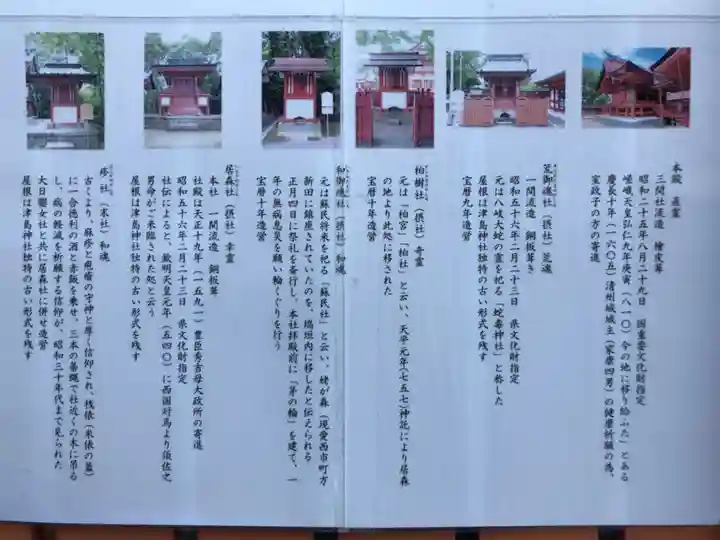 本殿　直霊
三間社流造　檜皮葺
昭和二十五年八月二十九日　国重要文化財指定
嵯峨天皇弘仁九年庚寅（八一〇）今の地に移り給ふた」とある
慶長十年（一六〇五）清州城城主（家康四男）の健康祈願の為、
宝政子の方の寄進
荒御魂社（摂社）荒魂
一間流造　銅板葺き
昭和五十六年二月二十三日　県文化財指定
元は八岐大蛇の霊を祀る「蛇毒神社」と称した
屋根は津島神社独特の古い形式を残す
宝暦九年造営
柏樹社（摂社）奇霊
元は「柏宮」「柏社」と云い、天平元年（七五七）神託により居森
の地より此処に移された
宝暦十年造営
和御魂社（摂社）和魂
元は蘇民将来を祀る「蘇民社」と云い、姥が森（現愛西市町方
新田に鎮座されていたのを、境内に移したと伝えられる
正月四日に祭礼を斎行し、本社拝殿前に「茅の輪」を建て、一
年の無病息災を願い輪くぐりを行う
宝暦十年造営
居森社（摂社）幸霊
本社　一間流造　銅板葺
社殿は天正十九年（一五九一）豊臣秀吉母大政所の寄進
昭和五十六年二月二十三日　県文化財指定
社伝によると、欽明天皇元年（五四〇）に西国対馬より須佐之
男命がご来臨された処と云う
屋根は津島神社独特の古い形式を残す
疹社（末社）和魂
古くより、麻疹と疱瘡の守神と厚く信仰され、桟俵（米俵の蓋）
に一合徳利の酒と赤飯を乗せ、三本の藁縄で社近くの木に吊る
し、病の軽減を祈願する信仰が、昭和三十年代まで見られた
大日孁女社と共に居森社に併せ造営
屋根は津島神社独特の古い形式を残す